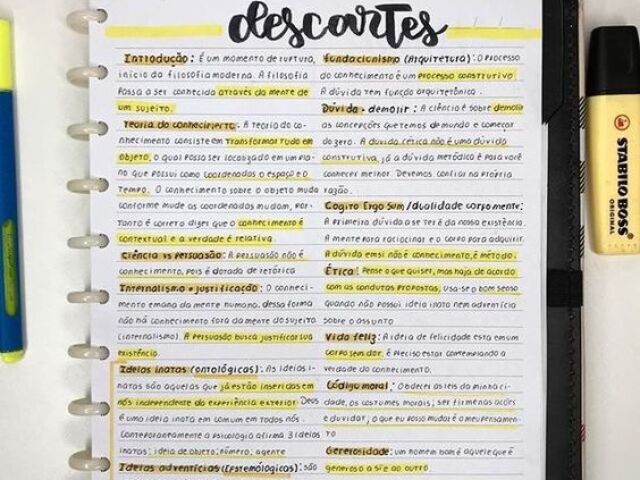 descartes
Introdução: É um momento de ruptura,
início da filosofia moderna. A filosofia
passa a ser conhecida através da mente de
um sujeito.
Teoria do conhecimento: A teoria do co-
nhecimento consiste em transformar tudo em
objeto, o qual possa ser localizado em um pla-
no que possui como coordenadas o espaço e o
tempo. O conhecimento sobre o objeto muda
conforme mude as coordenadas mudam, por-
tanto é correto dizer que o conhecimento é
contextual e a verdade é relativa.
Ciência vs persuasão: A persuasão não é
conhecimento, pois é dorada de retórica
Internalismo e justificação: O conheci-
mento emana da mente humana, dessa forma
não há conhecimento fora da mente do sujeito
(internalismo). A persuasão busca justificar sua
existência.
Ideias inatas (ontológicas): As ideias i-
natas são aquelas que já estão inseridas em
nós independente da experiência exterior. Deus
é uma ideia inata em comum em todos nós.
Contemporaneamente a psicologia afirma 3 ideias
inatas: ideia de objeto; número; agente
Ideias adventícias (Epistemológicas): são
fundacionismo (Arquitetura): O processo
do conhecimento é um processo construtivo.
A dúvida tem função arquitetônica.
Dúvida - demolir: A ciência é sobre demolir
as concepções que temos de mundo e começar
do zero. A dúvida cética não é uma dúvida
construtiva, já a dúvida metódica é para você
conhecer melhor. Devemos confiar na própria
razão.
Cogito Ergo Sum/dualidade corpo mente:
A primeira dúvida a se ter é da nossa existência.
A mente para raciocinar e o corpo para adquirir.
A dúvida em si não é conhecimento, é método.
Ética: Pense o que quiser, mas haja de acordo
com as condutas propostas, usa-se o bom senso
quando não possui ideia inata nem adventícia
sobre o assunto
Vida feliz: A ideia de felicidade esta em um
corpo sem dor. É preciso estar contemplando a
verdade do conhecimento.
Código moral: Obedecer as leis da minha ci-
dade, os costumes morais; ser firme nas ações
e duvidar; o que eu posso mudar é o meu pensamen-
to
Generosidade: um homem bom é aquele que é
generoso a si e ao outro.
STABILO BOSS
ORIGINAL